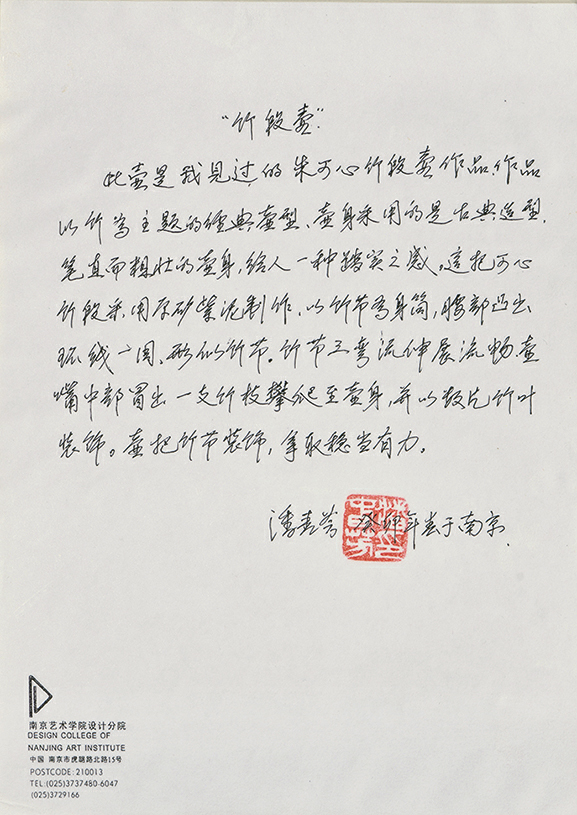 “竹段壶”
此壶是我见过的朱可心竹段壶作品.作品
以竹为主题的经典壶型、壶身采用的是古典造型.
笔直而粗壮的壶身,给人一种踏实之感。这把可心
竹段采用原矿紫泥制作、以竹节为身筒,腰部凸出
环线一周、形似竹节。竹节三弯流伸展流畅.壶
嘴中部冒出一支竹枝攀爬至壶身,并以数片竹叶
装饰。壶把竹节装饰,拿取稳当有力。
潘春芳 年 于南京.
南京艺术学院设计分院
DESIGN COLLEGE OF
NANJING ART INSTITUTE
中国 南京市虎踞路北路15号
POSTCODE: 210013
TEL:(025)3737480-6047
(025)3729166